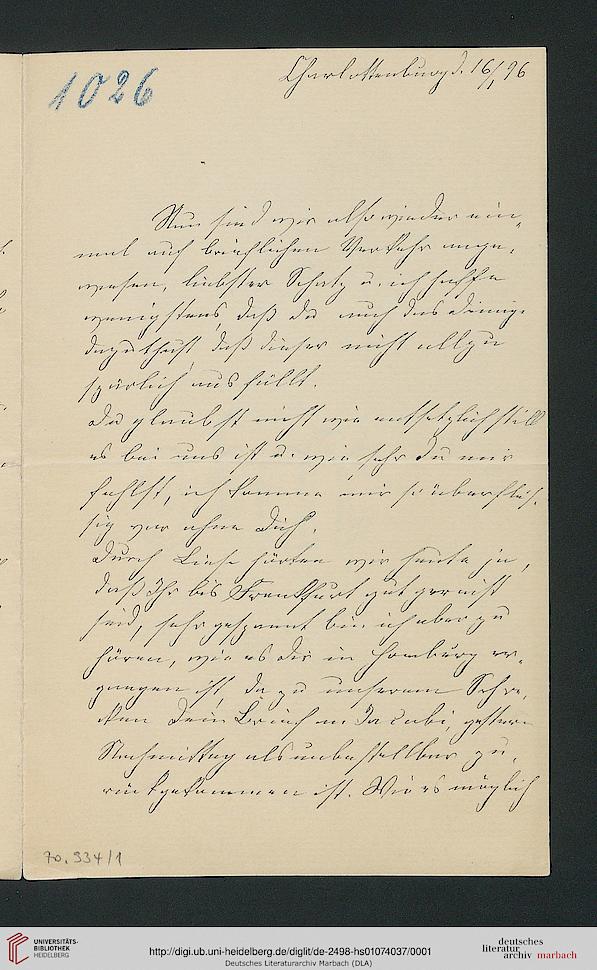 1026
Charlottenburg d. 16/1 96
Nun sind wir also wieder ein-
mal auf brieflichen Verkehr ange-
wiesen, liebster Schatz u. ich hoffe
wenigstens, daß du auch das Deinige
dazu thust daß dieser nicht allzu
spärlich ausfällt.
Du glaubst nicht wie entsetzlich still
es bei uns ist u. wie sehr Du mir
fehlst, ich komme mir so überflüs-
sig vor ohne Dich.
Durch Liese hörten wir heute ja,
daß Ihr bis Frankfurt gut gereist
seid, sehr gespannt bin ich aber zu
hören, wie es Dir in Homburg er-
gangen ist da zu unserem Schre-
cken Dein Brief an Jacobi, gestern
Nachmittag als unbestellbar zu-
rückgekommen ist. Wie es möglich
70.334/1
UNIVERSITÄTS-
BIBLIOTHEK
HEIDELBERG
http://digi.ub.uni-heidelberg.de/diglit/de-2498-hs01074037/0001
Deutsches Literaturarchiv Marbach (DLA)
deutsches
literatur
archiv marbach